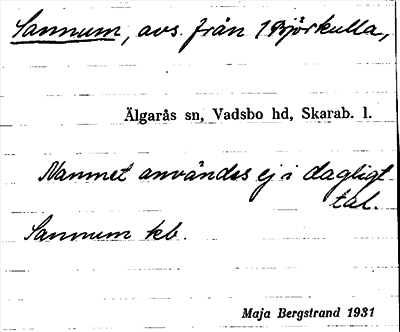 Sannum, avs. från 1 Björkulla,
Älgarås sn, Vadsbo hd, Skarab. l.
Namnet användes ej i dagligt
tal.
Sannum kb.
Maja Bergstrand 1931